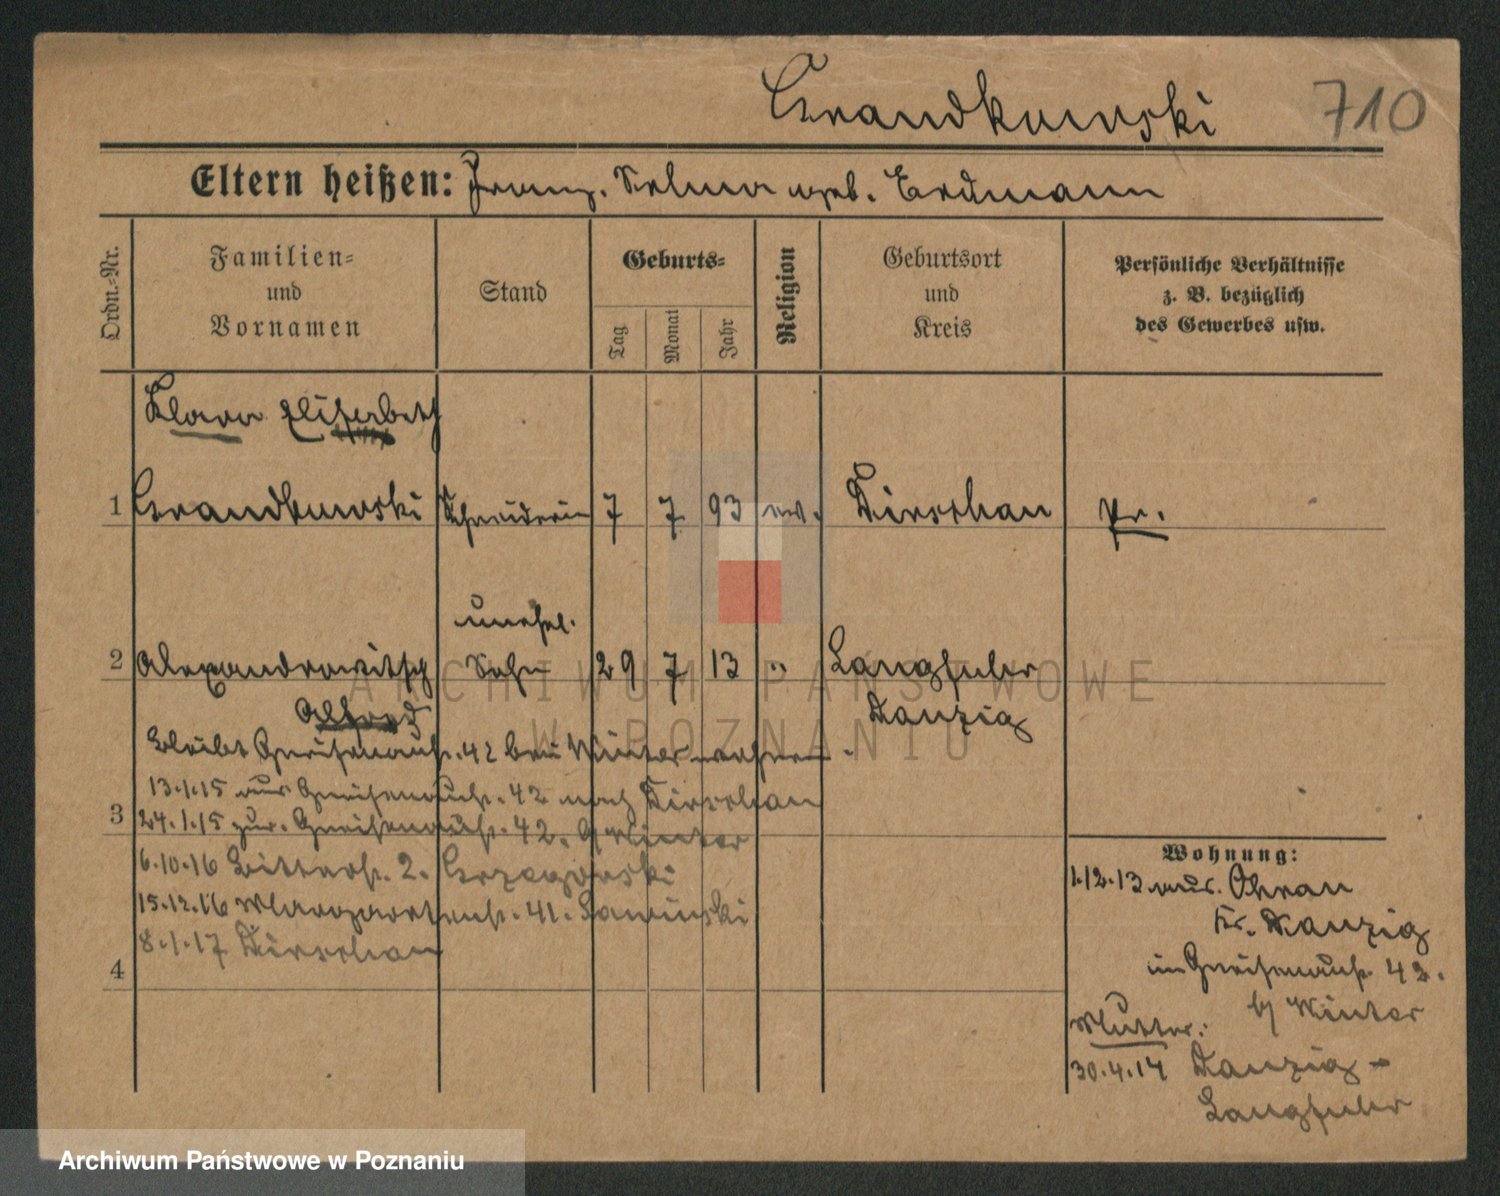 Grandkowski 710
Eltern heißen: Franz. Selma geb. Erdmann
Ordn.-Nr.
Familien-
und
Vornamen
Stand
Geburts-
Tag
Monat
Jahr
Religion
Geburtsort
und
Kreis
Persönliche Verhältnisse
z. B. bezüglich
des Gewerbes usw.
Klara Elisabeth
1 Grandkowski Schneiderin 7 7 93 ev. Dirschau Pr.
unehel.
2 Alexandrowitsch Sohn 29 7 13 " Langfuhr
Alfred Danzig
bleibt Gneisenaustr. 42 bei Winter wohnen.
13.1.15 aus Gneisenaustr. 42 nach Dirschau
3 24.1.15 zur. Gneisenaustr. 42. Winter
6.10.16 Bitterstr. 2.
15.12.16 41. Kaminski
8.1.17 Dirschau
4
Wohnung:
1.12.13 aus. Ohrau
Kr. Danzig
in Gneisenaustr. 42.
bei Winter
Mutter:
30.4.14 Danzig-
Langfuhr
ARCHIWUM PAŃSTWOWE
W POZNANIU
Archiwum Państwowe w Poznaniu